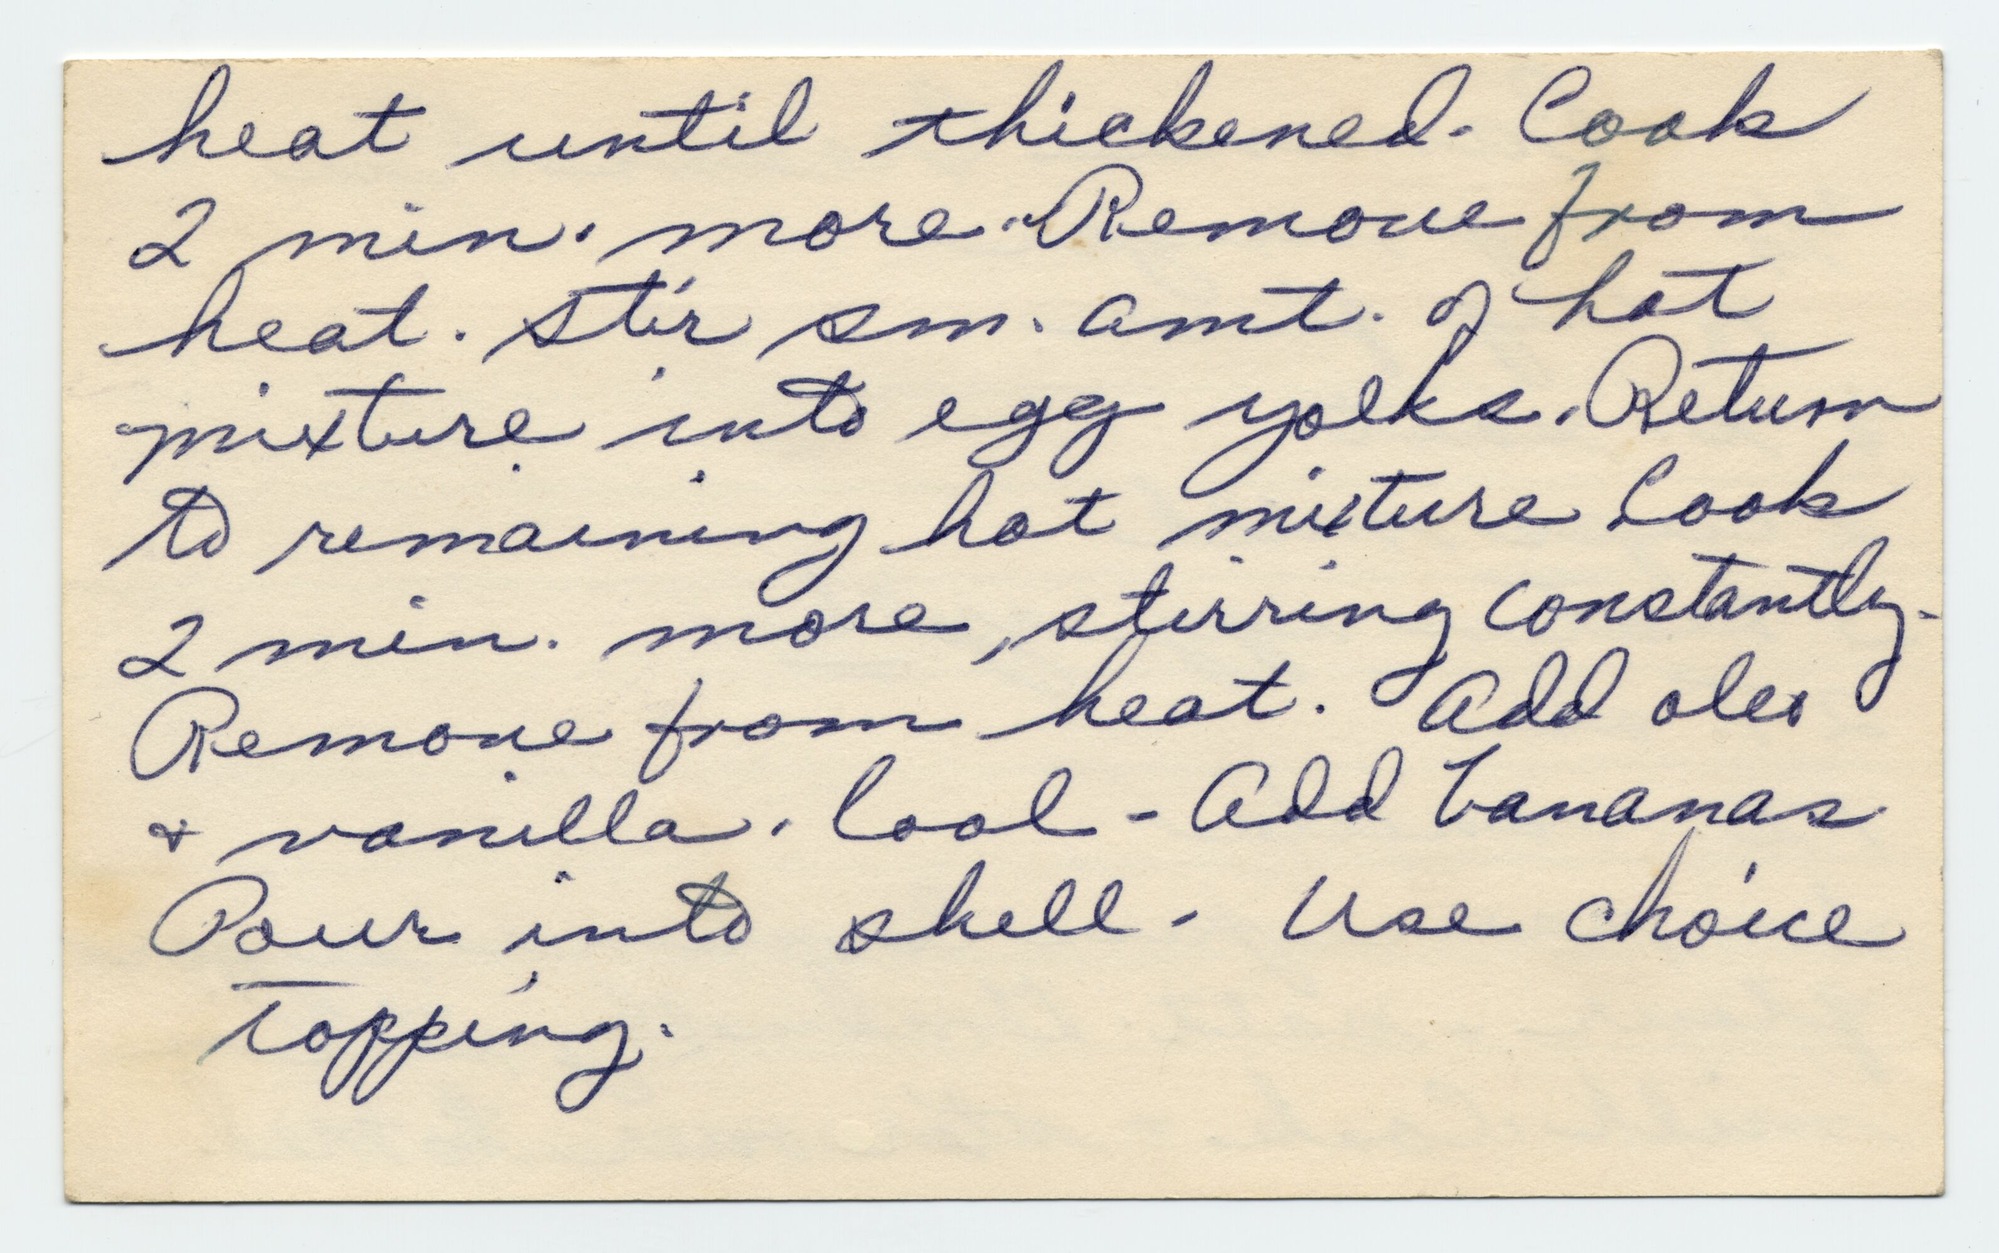 heat until thickened. Cook
2 min. more. Remove from
heat. Stir sm. amt. of hot
mixture into egg yolks. Return
to remaining hot mixture Cook
2 min. more, stirring constantly.
Remove from heat. Add oleo
& vanilla. Cool - Add bananas
Pour into shell - Use choice
topping.